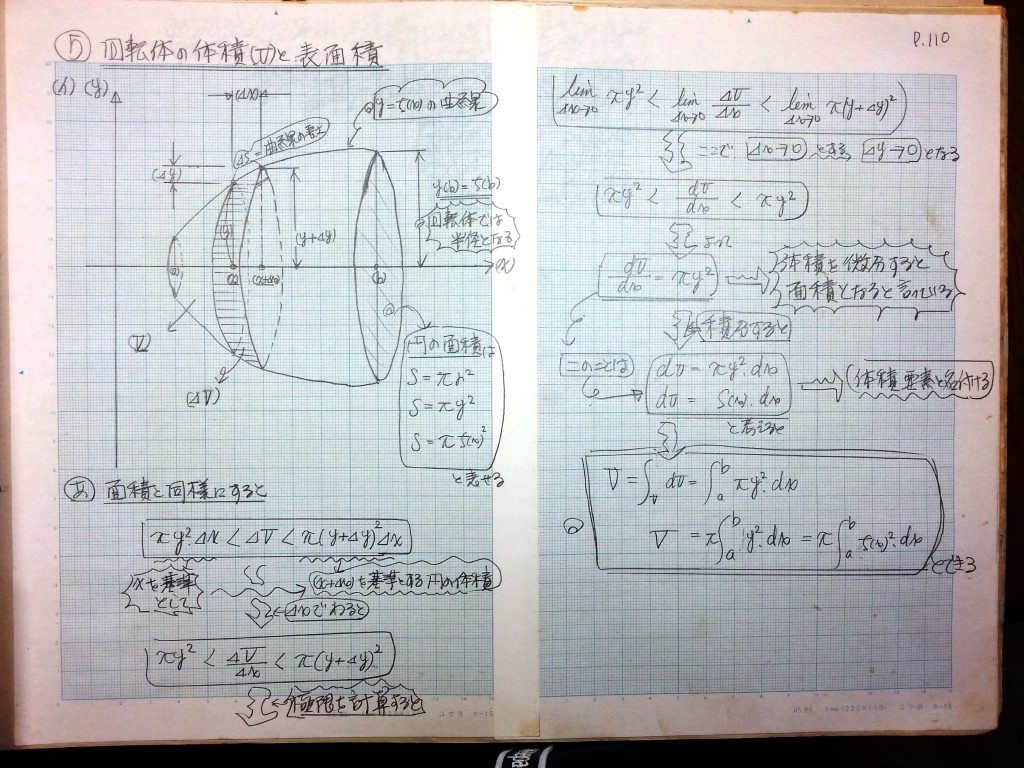 5 回転体の体積(V)と表面積
P.110
(イ) (y)
(Δx)
y=f(x)の曲線
ΔS=曲線の長さ
(Δy)
y(b)=f(b)
回転体では
半径となる
(y)
(y+Δy)
(a)
(x)
(x+Δx)
(b)
(x)
(V)
(ΔV)
円の面積は
S=πr²
S=πy²
S=πf(x)²
と表せる
あ 面積と同様にすると
πy²·Δx < ΔV < π(y+Δy)²Δx
xを基準
として
(x+Δx)を基準とする円の体積
Δxでわると
πy² < ΔV/Δx < π(y+Δy)²
極限を計算すると
lim Δx→0 πy² < lim Δx→0 ΔV/Δx < lim Δx→0 π(y+Δy)²
ここで Δx→0 とすると Δy→0 となる
πy² < dV/dx < πy²
より
dV/dx = πy²
体積を微分すると
面積となると言っている
積分すると
このことは
dV = πy²·dx
dV = S(x)·dx
体積要素と名付ける
と考えると
V=∫v dV=∫a b πy²·dx
V =π∫a b y²·dx =π∫a b f(x)²·dx
とできる
コクヨ ホ-15
コクヨ ホ-15